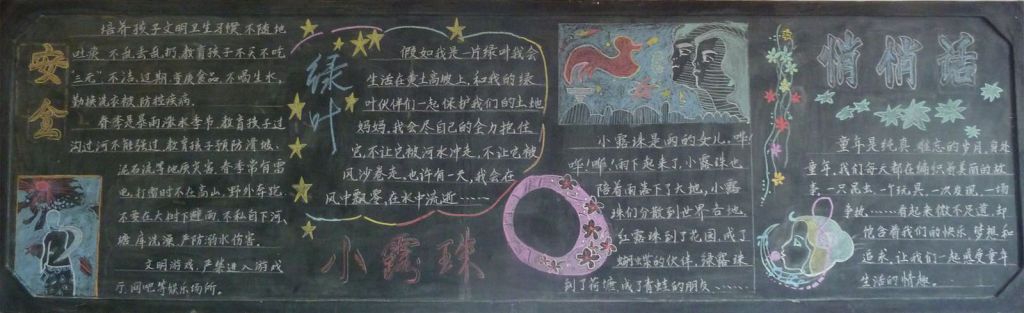 安全
培养孩子文明卫生习惯不随地
吐痰,不乱丢乱扔,教育孩子不买不吃
"三无"不洁、过期、变质食品,不喝生水,
勤换洗衣被,防控疾病。
春季是暴雨涨水季节,教育孩子过
沟过河不能强过,教育孩子预防滑坡、
泥石流等地质灾害,春季常有雷
电,打雷时不在高山、野外车坨,
不要在大树下避雨,不私自下河、
塘、库洗澡,严防溺水伤害。
文明游戏,严禁进入游戏
厅、网吧等娱乐场所。
绿叶
假如我是一片绿叶我会
生活在黄土高坡上,和我的绿
叶伙伴们一起保护我们的土地
妈妈,我会尽自己的全力抱住
它,不让它被河水冲走,不让它被
风沙卷走,也许有一天,我会在
风中飘零,在水中流逝……
小露珠
小露珠是雨的女儿,哗!
哗!哗!雨下起来了,小露珠也
陪着雨落下了大地,小露
珠们分散到世界各地,
红露珠到了花园,成了
蝴蝶的伙伴,绿露珠
到了荷塘,成了青蛙的朋友……
悄悄话
童年是纯真、难忘的岁月,身处
童年,我们每天都在编织着美丽的故
事,一只昆虫、一个玩具、一次发现、一场
争执……看起来微不足道,却
包含着我们的快乐、梦想和
追求,让我们一起感受童年
生活的情趣。